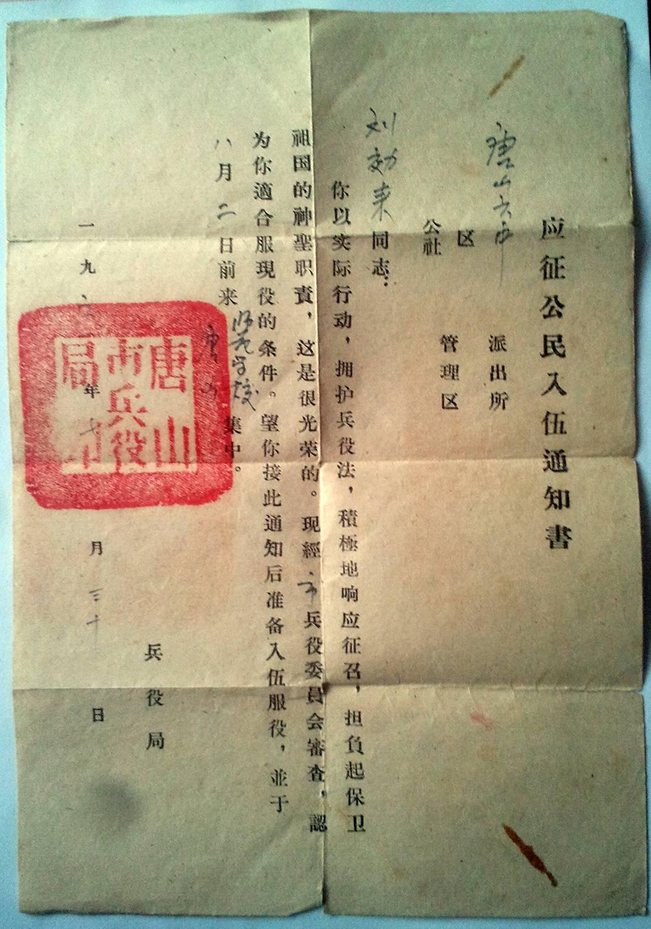 应征公民入伍通知書
唐山市 派出所
区 管理区
公社
刘効来同志：
你以实际行动，拥护兵役法，積極地响应征召，担負起保卫
祖国的神聖职責，这是很光荣的。現經市兵役委員会審查，認
为你適合服現役的条件。望你接此通知后准备入伍服役，並于
八月二日前来唐山师范学校集中。
兵役局
一九 年七月三十日
唐山
市兵役
局印